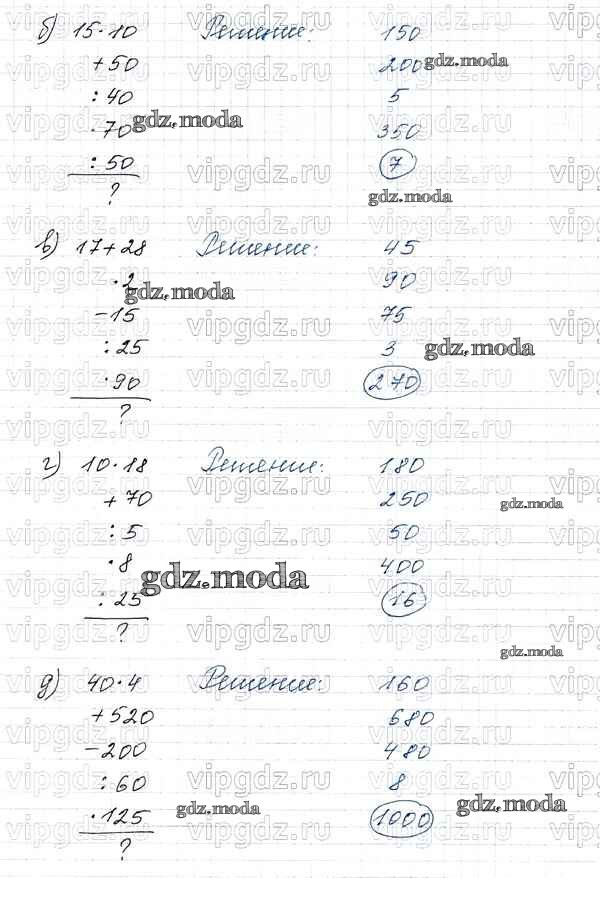 б) 15·10 Решение: 150
+50 200
:40 5
·70 350
:50 7
?
в) 17+28 Решение: 45
·2 90
-15 75
:25 3
·90 270
?
г) 10·18 Решение: 180
+70 250
:5 50
·8 400
:25 16
?
д) 40·4 Решение: 160
+520 680
-200 480
:60 8
·125 1000
?
gdz.moda
vipgdz.ru